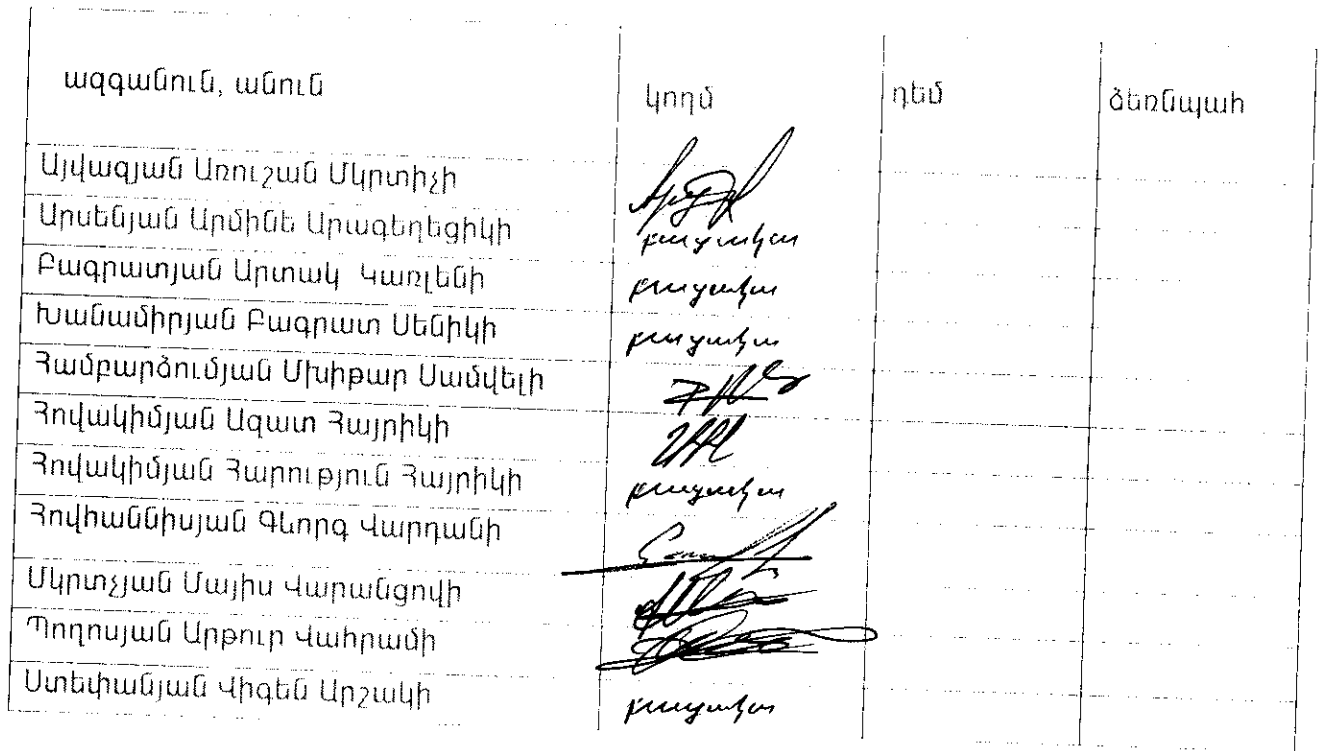 ազգանուն, անուն կողմ դեմ ձեռնպահ
Այվազյան Առուշան Մկրտիչի
Արսենյան Արմինե Արագեղեցիկի բացակա
Բագրատյան Արտակ Կառլենի բացակա
Խանամիրյան Բագրատ Սենիկի բացակա
Համբարձումյան Մխիթար Սամվելի
Հովակիմյան Ազատ Հայրիկի
Հովակիմյան Հարություն Հայրիկի բացակա
Հովհաննիսյան Գևորգ Վարդանի
Մկրտչյան Մայիս Վարանցովի
Պողոսյան Արթուր Վահրամի
Ստեփանյան Վիգեն Արշակի բացակա